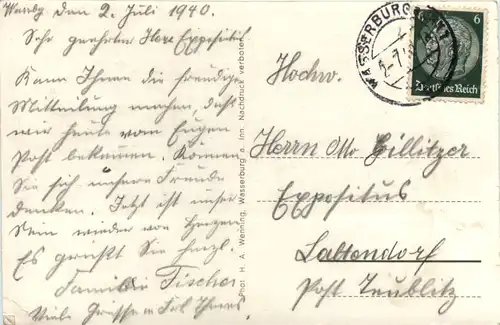 den 2. Juli 1940.
Sehr geehrter Herr Expositus!
Kann Ihnen die freudige
Mitteilung machen, daß
wir heute vom Eugen
Post bekamen. Können
Sie sich unsere Freude
denken. Jetzt ist unser
wieder von Herzen
Es grüßt Sie herzl.
Familie Fischer
Viele Grüsse
Phot. H. A. Wenning, Wasserburg a. Inn. Nachdruck verboten
WASSERBURG
6 6
Deutsches Reich
Hochw.
Herrn Otto Zillitzer
Expositus
Post Teublitz